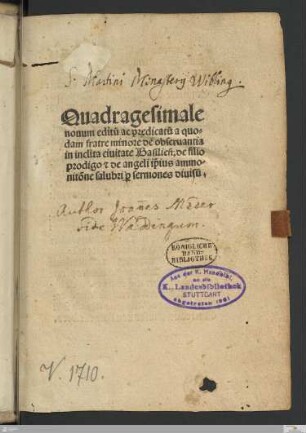 S. Martini Monastery Wibling.
Quadragesimale
nonum editũ ac predicatũ a quo-
dam fratre minore de obseruantia
in inclita ciuitate Basilieñ. de filio
prodigo ⁊ de angeli ipius ammo-
nitõne salubri p sermones diuisũ.
Author Joañes Meder
fide Waddingum.
KÖNIGLICHE
HAND-
BIBLIOTHEK
Aus der K. Handbibl.
an die
K. Landesbibliothek
STUTTGART
abgetreten 1901
V. 1710.